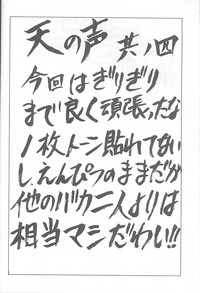 天の声 其ノ四
今回はぎりぎり
まで良く頑張ったな
1枚トーン貼れてない
し、えんぴつのままだが
他のバカ二人よりは
相当マシだわい!!